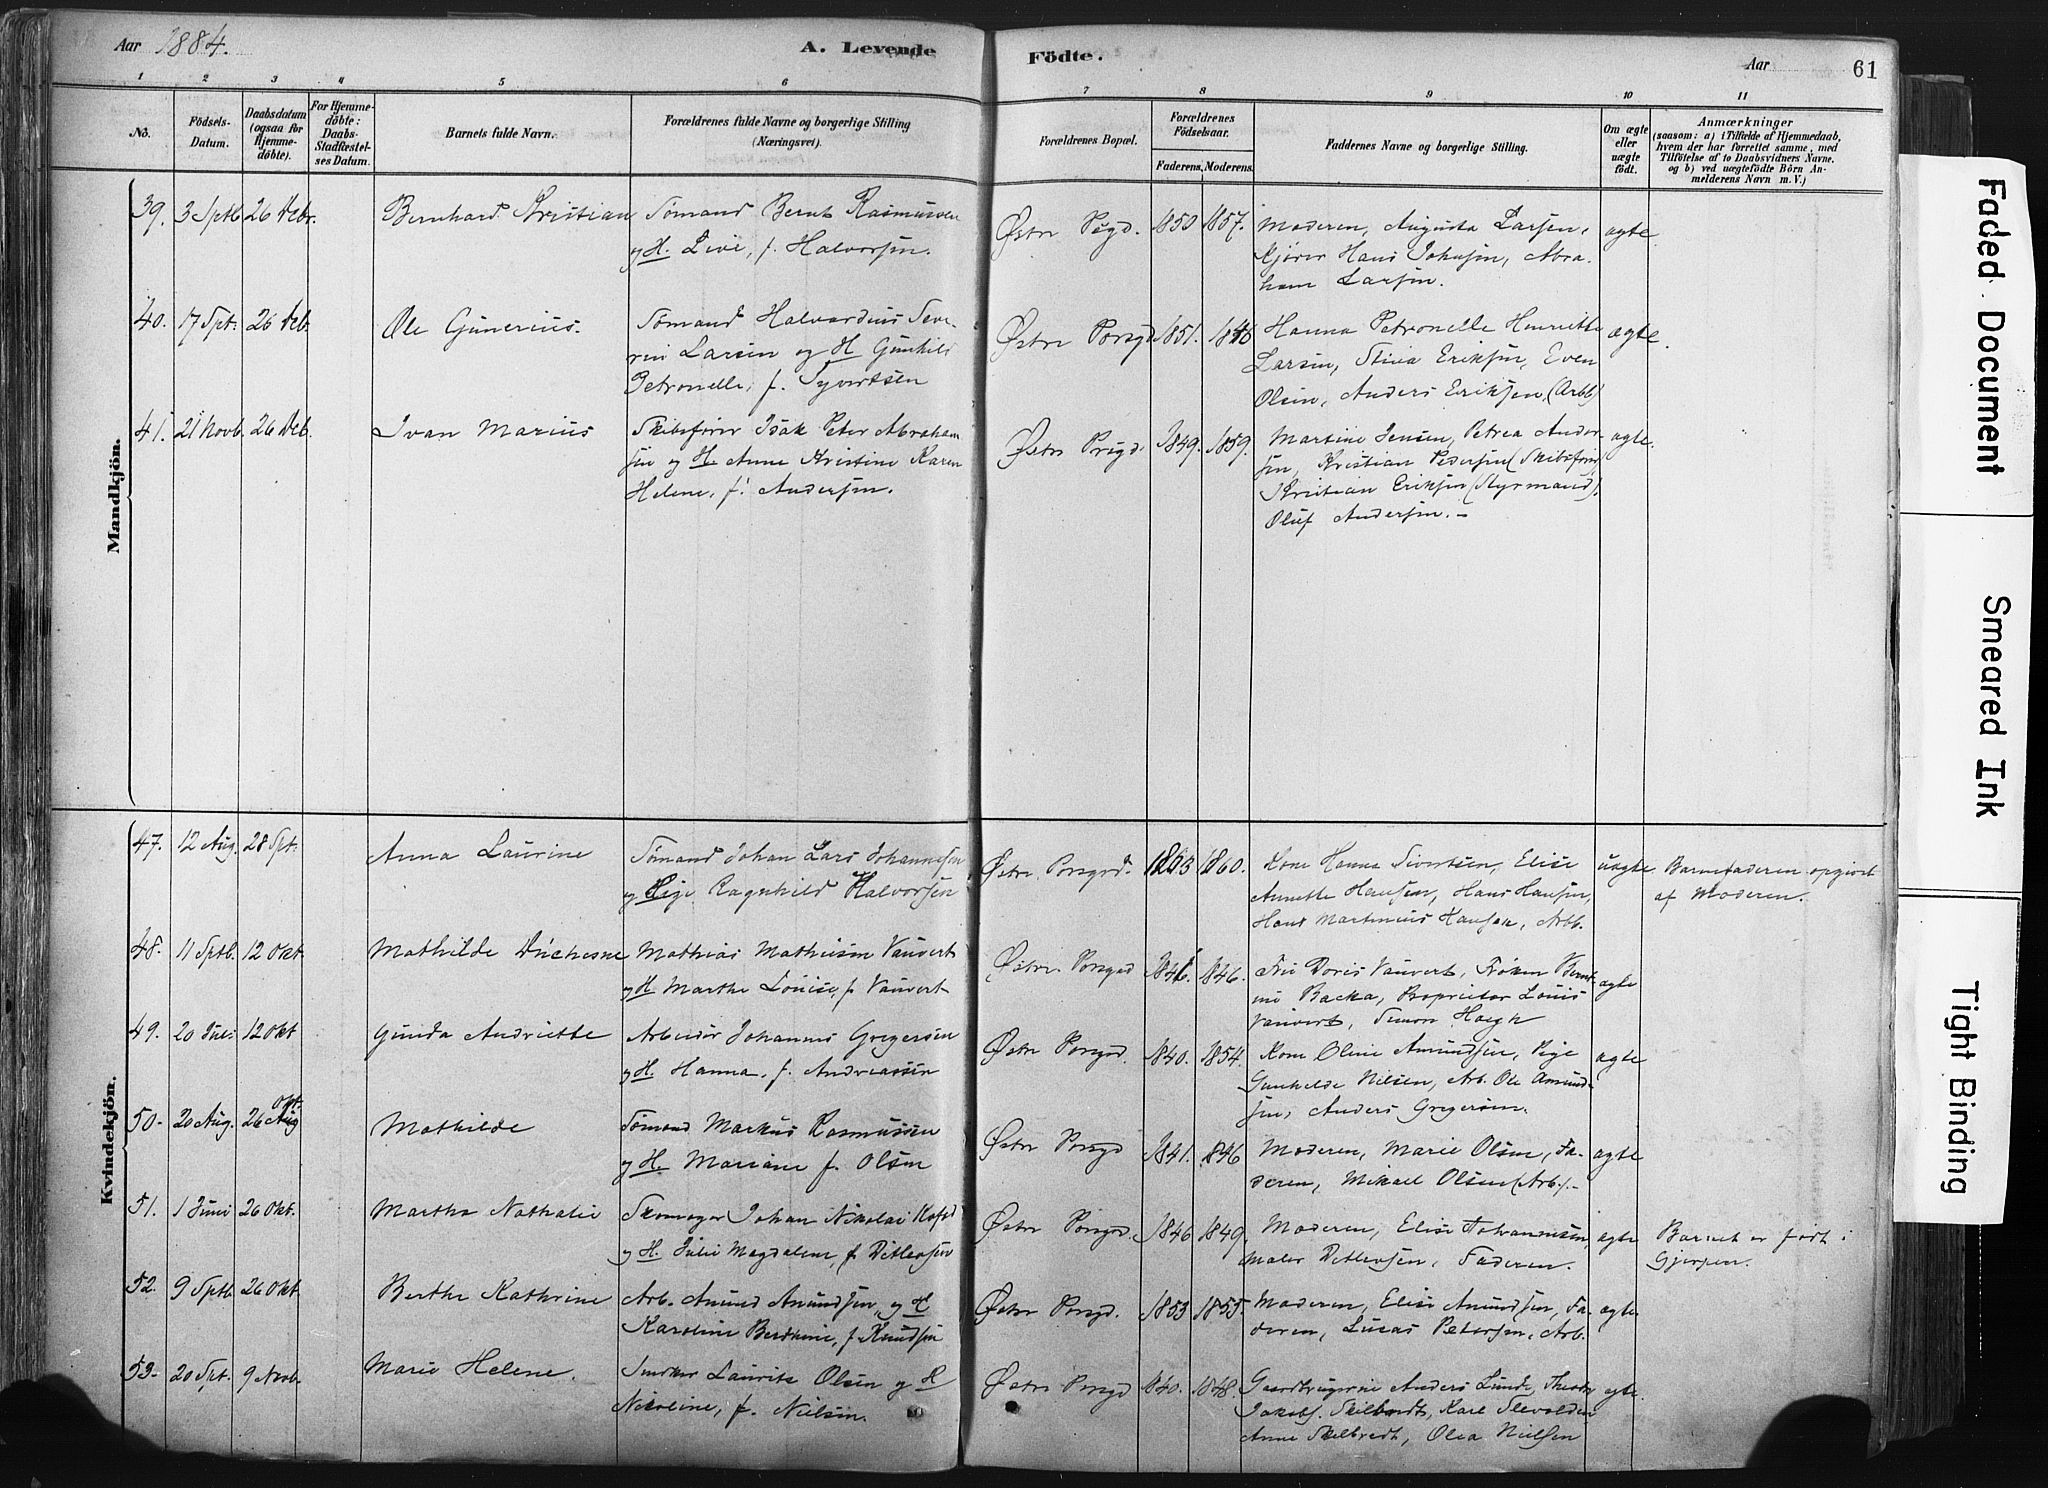 Aar 1884.
A. Levende Födte.
Aar
61
1 2 3 4 5 6 7 8 9 10 11
No.
Födsels-Datum.
Daabsdatum (ogsaa for Hjemme-döbte).
For Hjemme-döbte: Daabs-Stadfæstel-ses Datum.
Barnets fulde Navn.
Forældrenes fulde Navne og borgerlige Stilling (Næringsvei).
Forældrenes Bopæl.
Forældrenes Födselsaar.
Faderens. Moderens.
Faddernes Navne og borgerlige Stilling.
Om ægte eller uægte födt.
Anmærkninger
(saasom: a) i Tilfælde af Hjemmedaab,
hvem der har forrettet samme, med
Tilföielse af to Daabsvidners Navne.
og b) ved uægtefödte Börn An-
melderens Navn m. V.)
Mandkjön.
39. 3 Sptb. 26 Debr. Bernhard Kristian
Sömand Bernt Rasmussen
og H. Live, f. Halvorsen.
Østre Psgd. 1850 1857.
Moderen, Augusta Larsen,
Kjører Hans Johnsen, Abra-
ham Larsen.
ægte
40. 17 Spt. 26 Deb. Ole Gunerius.
Sömand Halvardius Seve-
rin Larsen og H Gunhild
Petronelle, f. Syvertsen
Østre Porsgd 1851. 1846
Hanna Petronelle Henriette
Larsen, Stina Eriksen, Even
Olsen, Anders Eriksen, (Arb)
ægte.
41. 21 Novb. 26 Deb. Ivan Marius
Skibsfører Isak Peter Abraham-
sen og H. Anne Kristine Karen
Helene, f. Andersen.
Østre Prsgd. 1849. 1859.
Martine Jensen, Petrea Ander-
sen, Kristian Pedersen (Skibsfører)
Kristian Eriksen (Styrmand),
Oluf Andersen.-
ægte.
Kvindekjön.
47. 12 Aug. 28 Spt. Anna Laurine
Sömand Johan Lars Johannesen
og Pige Ragnhild Halvorsen
Østre Porsgrd. 1863 1860.
Kone Hanna Sivertsen, Elise
Annette Hansen, Hans Hansen,
Hans Martinius Hansen, Arb.
uægte
Barnefaderen opgivet
af Moderen.
48. 11 Sptb. 12 Okt. Mathilde Duchesne
Mathias Mathiesen Vauvert
og H Marthe Louise, f. Vauvert
Østre Porsgrd 1846. 1846.
Fru Doris Vauvert, Frøken Bernt-
ine Backa, Proprietær Louis
Vauvert, Simon Høegh
ægte
49. 20 Juli 12 Okt Gunda Andriette
Arbeider Johannes Gregersen
og H. Hanna, f. Andreassen
Østre Porsgrd. 1840. 1854.
Kone Oline Amundsen, Pige
Gunhilde Nilsen, Arb. Ole Amund-
sen, Anders Gregersen.
ægte
50. 20 Aug. 26 Okt. Aug Mathilde
Sömand Markus Rasmussen
og H. Mariane f. Olsen
Østre Porsgd 1841. 1846
Moderen, Marie Olsen, Fa-
deren, Mikael Olsen (Arb.).-
ægte
51. 1 Juni 26 Okt. Martha Nathalie
Skomager Johan Nikolai Kofod
og H. Julie Magdalene, f. Ditlevsen
Østre Porsgrd 1846 1849.
Moderen, Elise Johannesen,
Maler Ditlevsen, Faderen.
ægte
Barnet er født i
Gjerpen.
52. 9 Sptb. 26 Okt. Berthe Kathrine
Arb. Amund Amundsen, og H
Karoline Berthine, f Knudsen
Østre Porsgd. 1853 1855.
Moderen, Elise Amundsen, Fa-
deren, Lucas Petersen, Arb.
ægte
53. 20 Spt. 9 Novb. Marie Helene.
Snedker Lauritz Olsen og H
Nicoline, f. Nielsen.
Østre Porsgd 1840. 1848.
Gaardbrugerne Anders Lunde,
Jakob. Skilbredt, Karl
Anne Skelbredt, Olea Nielsen
ægte.
Faded Document
Smeared Ink
Tight Binding